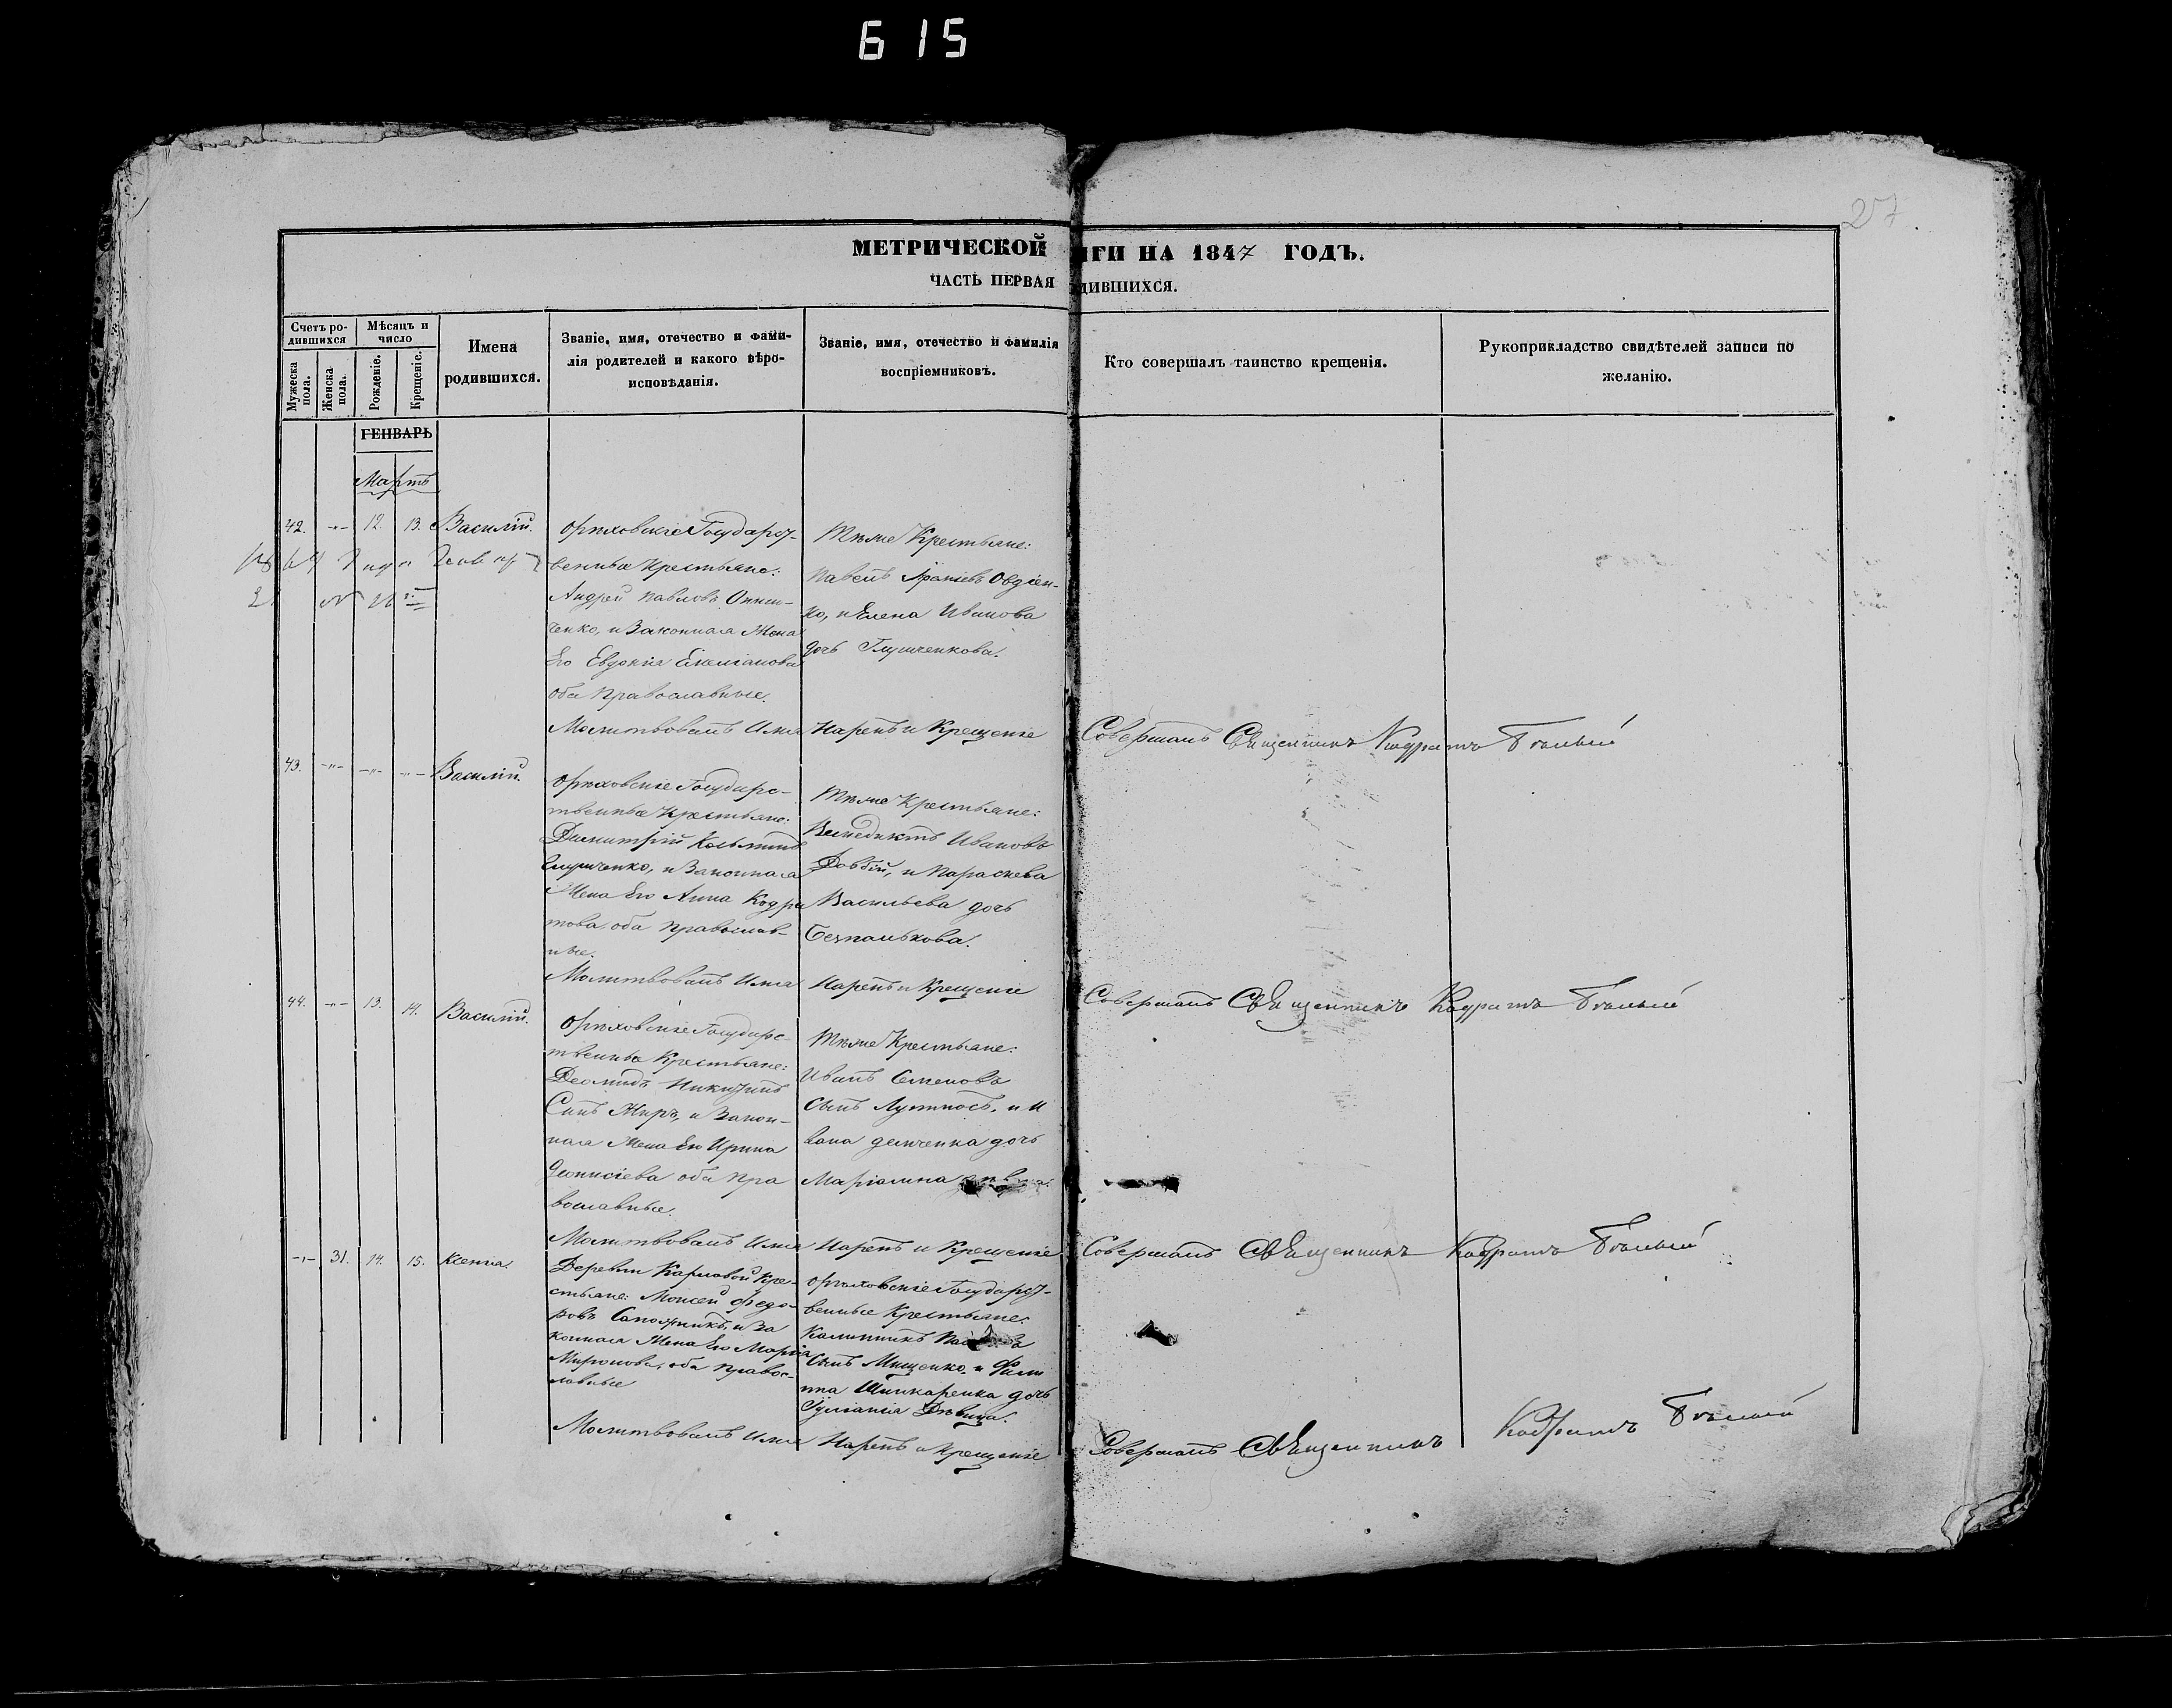 615
27
МЕТРИЧЕСКОЙ ИГИ НА 1847 ГОДЪ.
ЧАСТЬ ПЕРВАЯ ДИВШИХСЯ.
Счетъ ро-
дившихся
Мужеска
пола.
Женска
пола.
Мѣсяцъ и
число
Рожденіе.
Крещеніе.
Имена
родившихся.
Званіе, имя, отечество и фами-
лія родителей и какого вѣро-
исповѣданія.
Званіе, имя, отечество и фамилія
воспріемниковъ.
Кто совершалъ таинство крещенія.
Рукоприкладство свидѣтелей записи по
желанію.
ГЕНВАРЬ
Мартъ
42. -"- 12. 13. Василій.
Орѣховскіе Государст-
венные Крестьяне:
Андрей Павловъ Онищ-
ченко, и Законная Жена
Его Евдокія Емеліанова
оба Православные.
Тѣже Крестьяне:
Павелъ Овдіен-
ко, и Елена Иванова
дочь Глущенкова.
Молитвовалъ Имя Нарекъ и Крещеніе Совершалъ Священникъ Кодратъ Бѣлый
43. -"- -"- -"- Василій.
Орѣховскіе Государс-
твенные Крестьяне:
Димитрій Козьминъ
Глущенко, и Законная
Жена Его Анна Кодра
това, оба Православ-
ные.
Тѣже Крестьяне:
Венедиктъ Ивановъ
Довбій, и Параскева
Васильева дочь
Безпалькова.
Молитвовалъ Имя Нарекъ и Крещеніе Совершалъ Священникъ Кодратъ Бѣлый
44. -"- 13. 14. Василій.
Орѣховскіе Государс-
твенные Крестьяне:
Деомидъ Никитинъ
Сынъ Жиръ, и Закон-
ная Жена Его Ирина
Деонисіева оба Пра
вославные.
Тѣже Крестьяне:
Иванъ Семеновъ
Сынъ и И
вана Демченка дочь
Маріамна
Молитвовалъ Имя Нарекъ и Крещеніе Совершалъ Священникъ Кодратъ Бѣлый
-"- 31. 14. 15. Ксенія.
Деревни Карловой Кре-
стьяне: Моисей Федо-
ровъ Сапожникъ, и За
конная Жена Его Марія
Миронова, оба Правос-
лавные
Орѣховскіе Государст-
венные Крестьяне:
Калинникъ
Сынъ Мищенко, и Фили
ппа Шинкаренка дочь
Іуліанія Дѣвица.
Молитвовалъ Имя Нарекъ и Крещеніе Совершалъ Священникъ Кодратъ Бѣлый